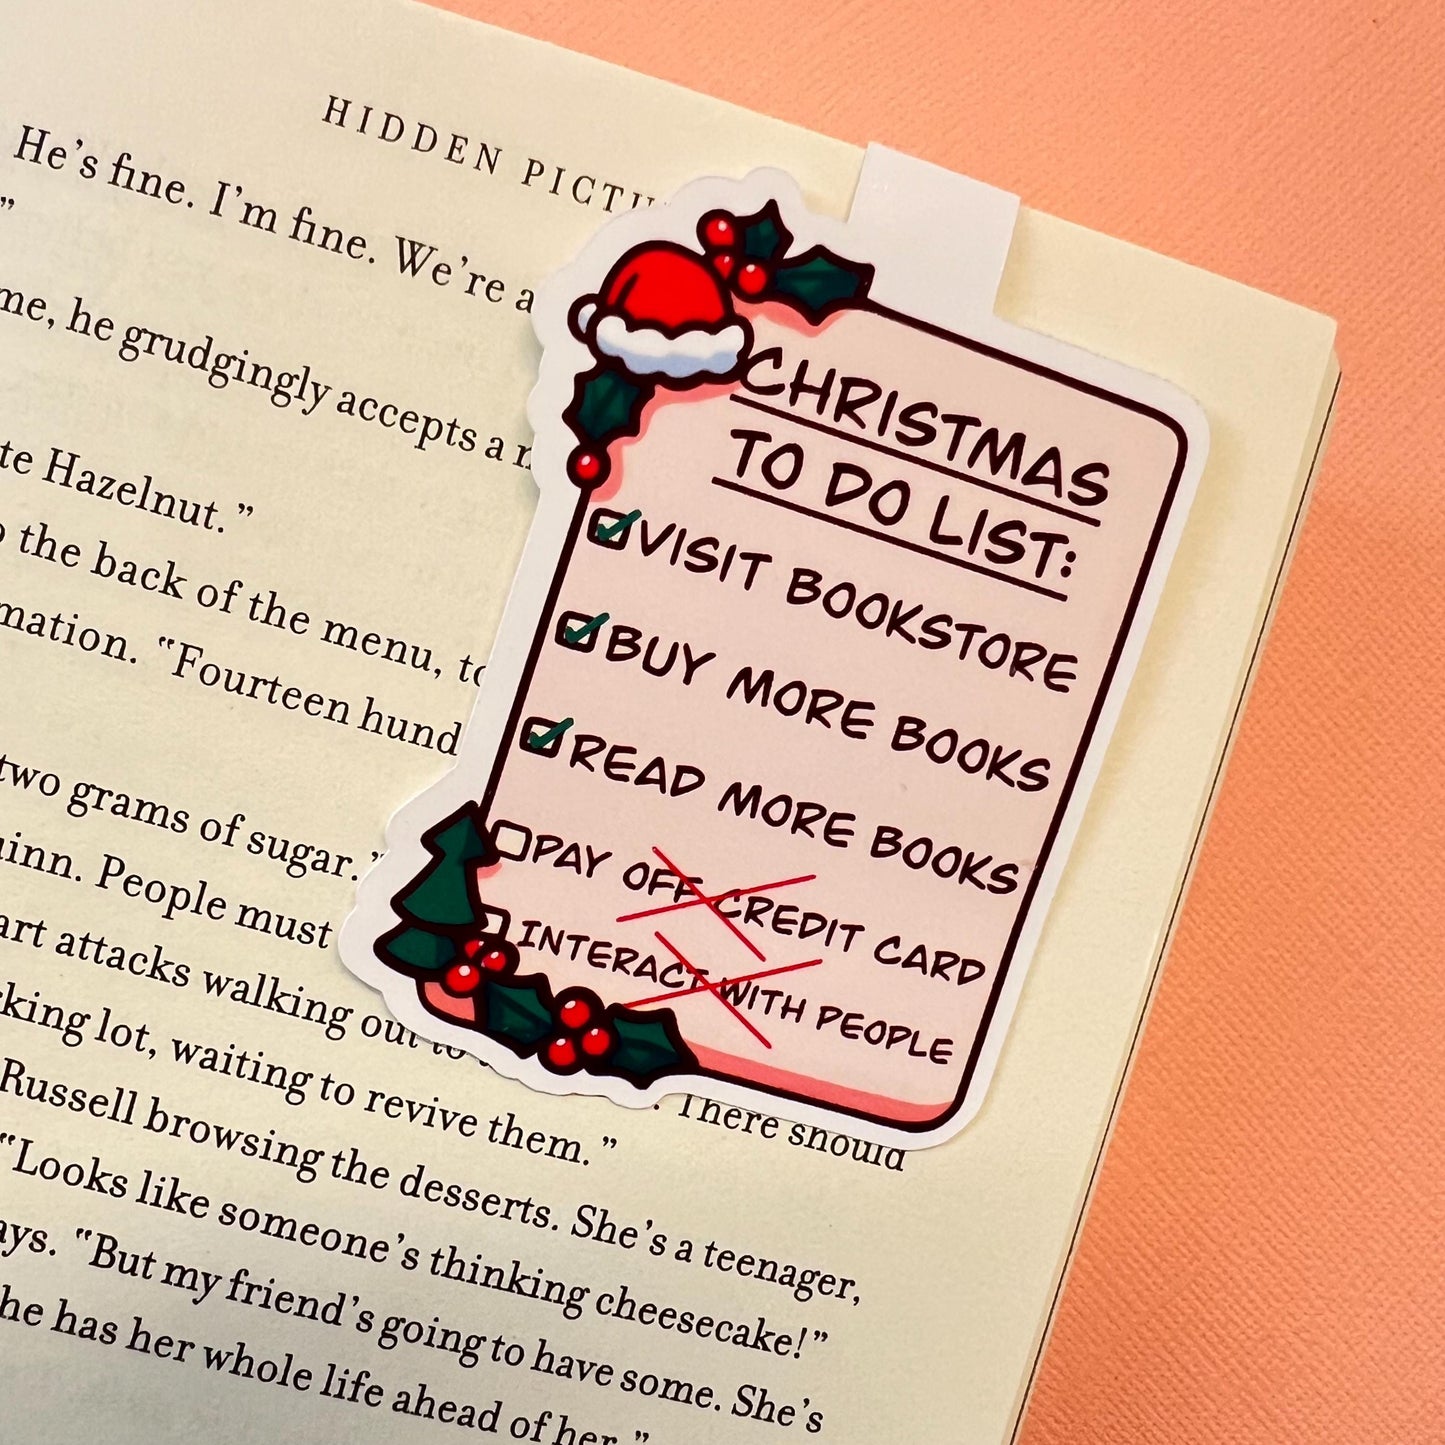 HIDDEN
He's fine. I'm fine. We're a
"
me, he grudgingly accepts a
te Hazelnut."
the back of the menu,
mation. "Fourteen
two grams of sugar."
inn. People must
art attacks walking
king lot, waiting to revive them."
There should
Russell browsing the desserts. She's a teenager,
"Looks like someone's thinking cheesecake!"
ays. "But my friend's going to have some. She's
he has her whole life ahead of her."
CHRISTMAS
TO DO LIST:
VISIT BOOKSTORE
BUY MORE BOOKS
READ MORE BOOKS
PAY OFF CREDIT CARD
INTERACT WITH PEOPLE